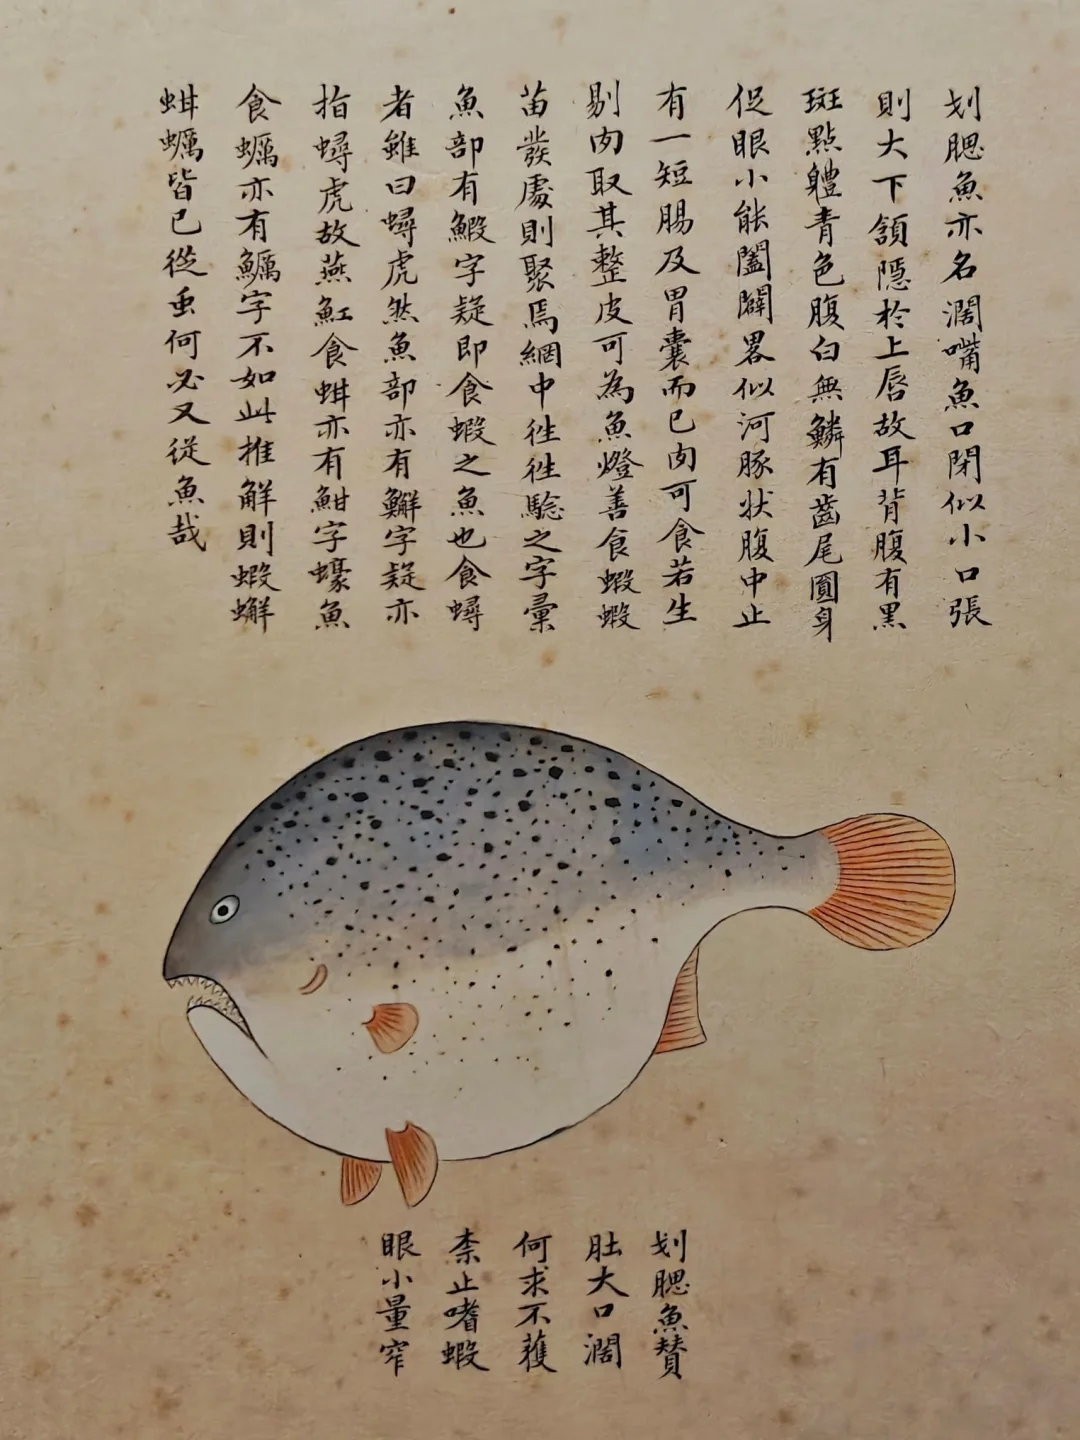 划腮魚亦名濶嘴魚口閉似小口張
則大下頷隱於上唇故耳背腹有黑
斑點軆青色腹白無鱗有齒尾圓身
促眼小能闔闢畧似河豚狀腹中止
有一短腸及胃囊而已肉可食若生
剔肉取其整皮可為魚燈善食蝦蝦
苗發處則聚焉網中徃徃驗之字彙
魚部有鰕字疑即食蝦之魚也食蟳
者雖曰蟳虎然魚部亦有鱰字疑亦
指蟳虎故燕魟食蚶亦有魽字蠔魚
食蠣亦有鱱字不如此推解則蝦蠏
蚶蠣皆已從虫何必又從魚哉
划腮魚賛
肚大口濶
何求不獲
柰止嗜蝦
眼小量窄